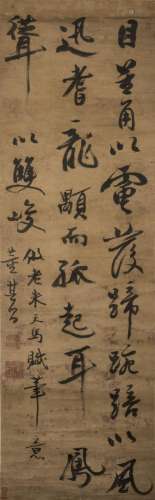 目星角以電發蹄踠踣以風
迅耆龍顒而孤起耳鳳
聳以雙峻
倣老米天馬賦筆意
董其昌